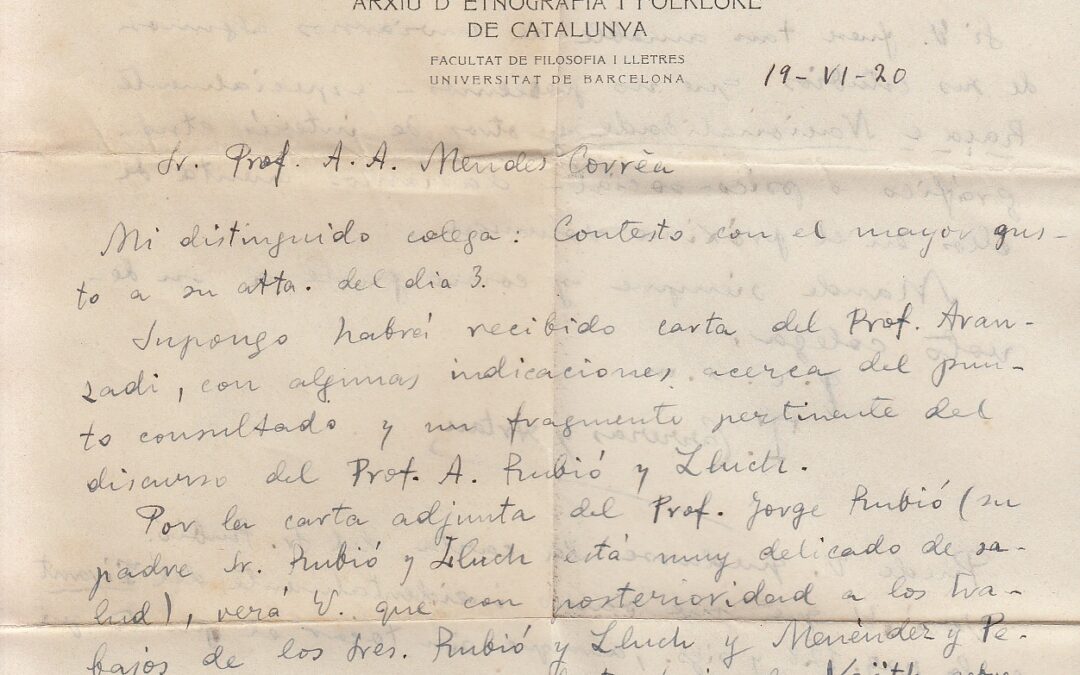 ARXIU D'ETNOGRAFIA I FOLKLORE
DE CATALUNYA
FACULTAT DE FILOSOFIA I LLETRES
UNIVERSITAT DE BARCELONA
19-VI-20
Sr. Prof. A. A. Mendes Corrêa
Mi distinguido colega: Contesto con el mayor gus-
to a su atta. del dia 3.
Supongo habrá recibido carta del Prof. Aran-
zadi, con algunas indicaciones acerca del pun-
to consultado y un fragmento pertinente del
discurso del Prof. A. Rubió y Lluch.
Por la carta adjunta del Prof. Jorge Rubió (su
padre Sr. Rubió y Lluch está muy delicado de sa-
lud), verá V. que con posterioridad a los tra-
bajos de los Sres. Rubió y Lluch y Menéndez y Pe-